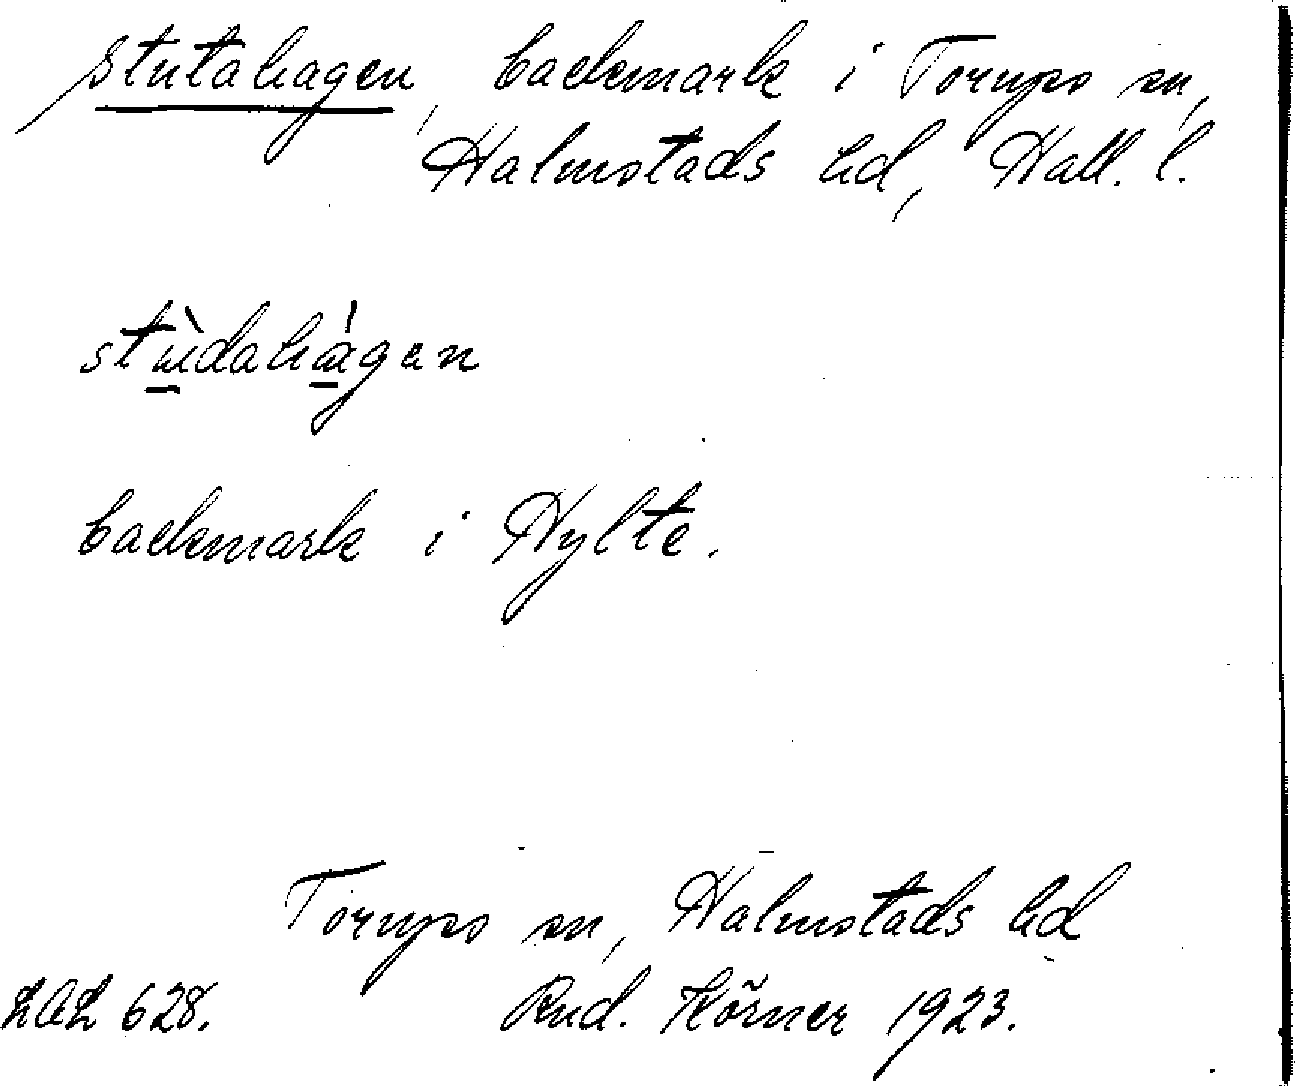 Stutahagen, backmark i Torups sn,
Halmstads hd, Hall. l.
stùdahágen
backmark i Hylte.
Torups sn, Halmstads hd
LAL 628. Rud. Körner 1923.